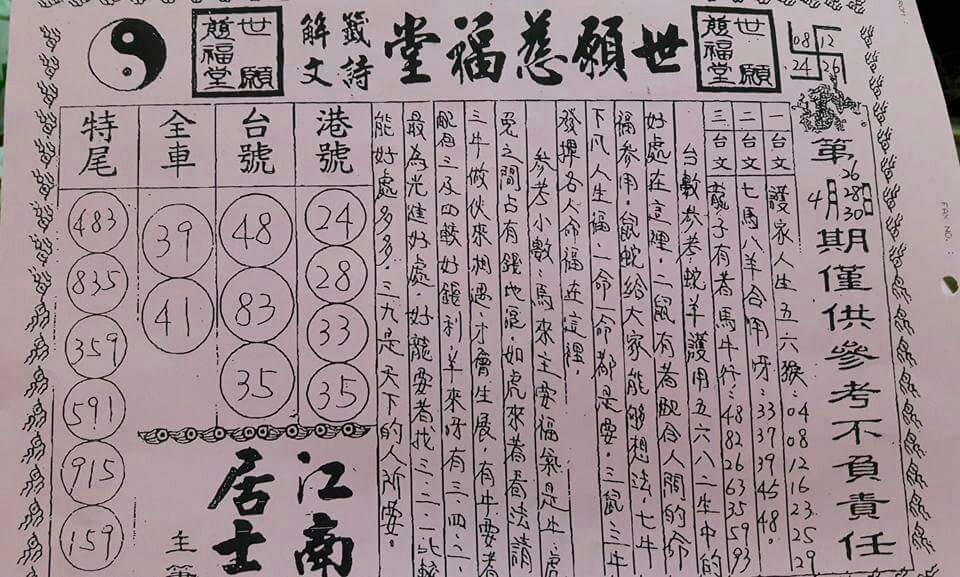 世願慈福堂
籤詩
解文
世願慈福堂
世願慈福堂
08 12
24 26
第 4月 26 28 30 日 期僅供參考不負責任
一 台文 護家人生五六猴:04 08 12 16 23 25 29
二 台文 七馬八羊合伴呀:33 37 39 45 48.
三 台文 龍子有者馬牛行:48 82 26 63 35 59 93
台數參考蛇羊護用五六八二生中的
好處在這裡.二鼠有者配合人間的命
福參伴.鼠蛇給大家能夠想法.七牛
下凡人生福.一命一命都是要.三鼠三牛
發揮各人命福在這裡.
參考小數:馬來主要福氣是牛.虎
兔之間占有錢地混.如虎來者看法請
三牛做伙來相遇.才會生展.有牛要者
配合三及四較好錢利羊來呀有三四.二.
最為光進好處.好龍要者找三.二.一比較
能好處多多.三九是天下的人所要.
港號
24
28
33
35
台號
48
83
35
全車
39
41
特尾
483
835
359
591
915
159
江南
居士
主筆
FAX NO.